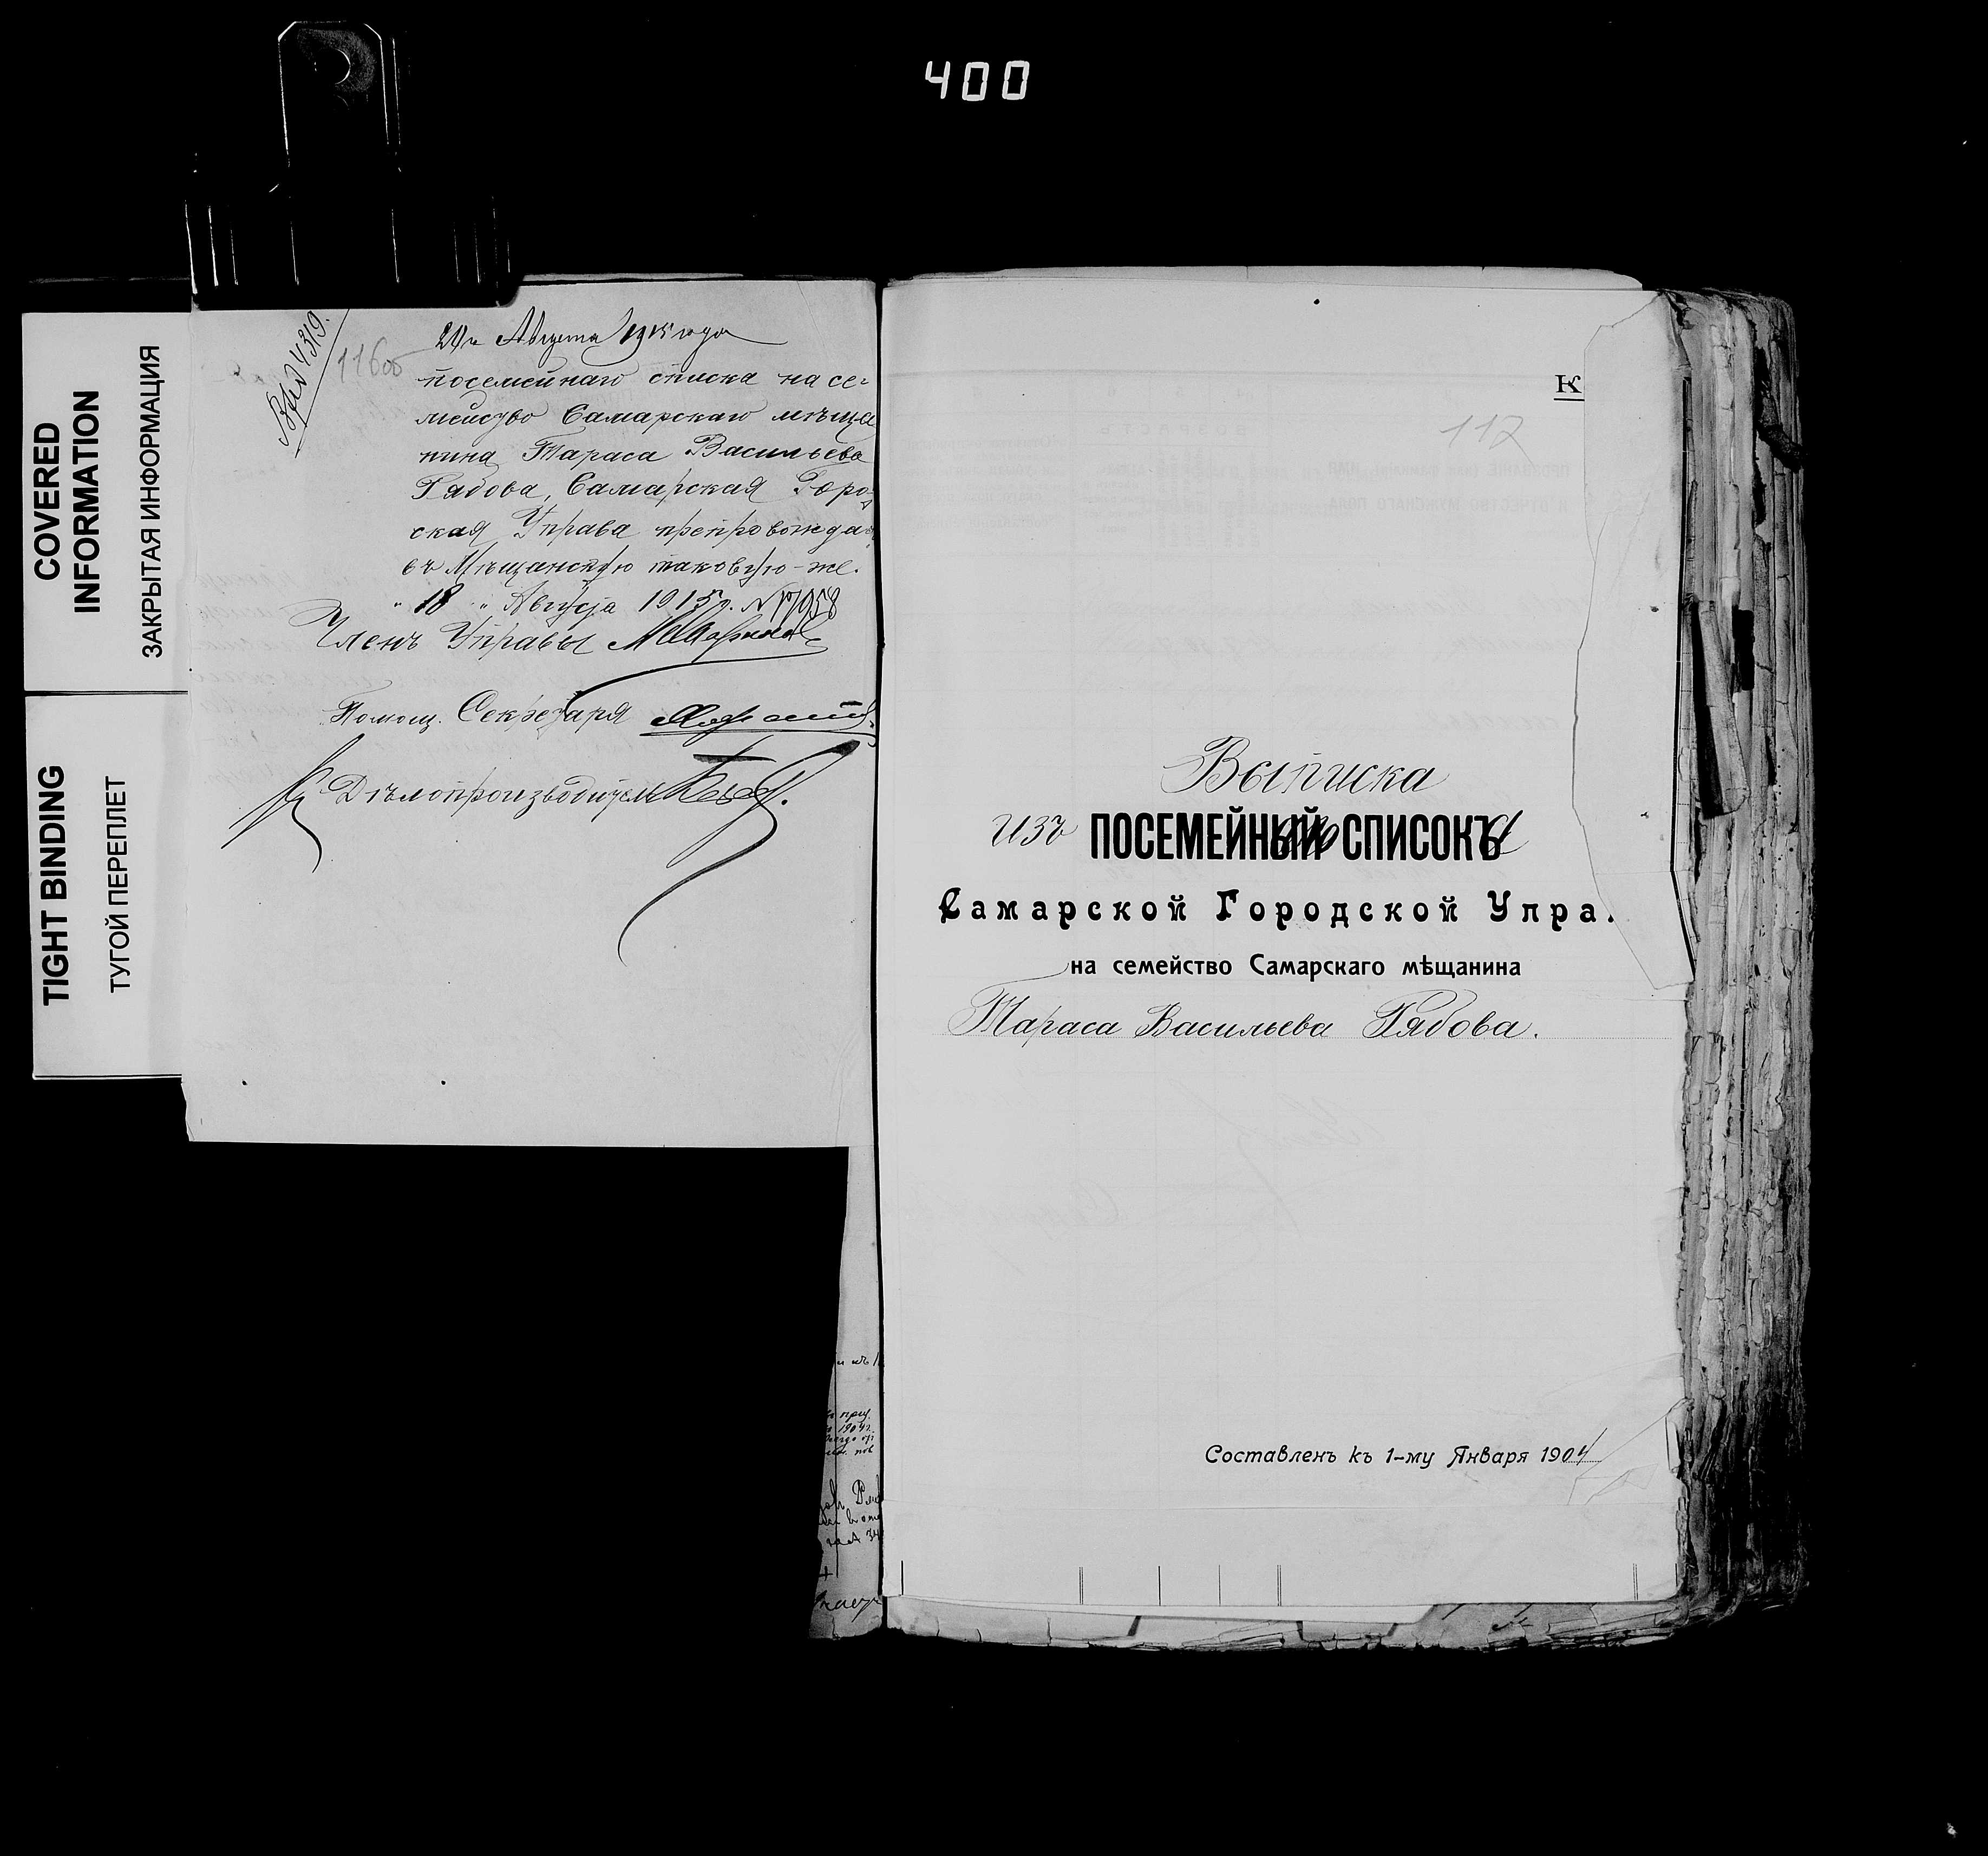 400
COVERED
INFORMATION
ЗАКРЫТАЯ ИНФОРМАЦИЯ
TIGHT BINDING
ТУГОЙ ПЕРЕПЛЕТ
4319.
Августа 1915 года
посемейнаго списка на се-
мейство Самарскаго мѣща
нина Тараса Васильева
Рябова, Самарская Горо-
ская Управа препровожда
въ Мѣщанскую таковую-же.
" 18 " Августа 1915 г. №
Членъ Управы
Помощ. Секретаря
Дѣлопроизводитель
К
112
Выписка
изъ ПОСЕМЕЙНЫЙ СПИСОКЪ
Самарской Городской Упра.
на семейство Самарскаго мѣщанина
Тараса Васильева Рябова.
Составленъ къ 1-му Января 1904